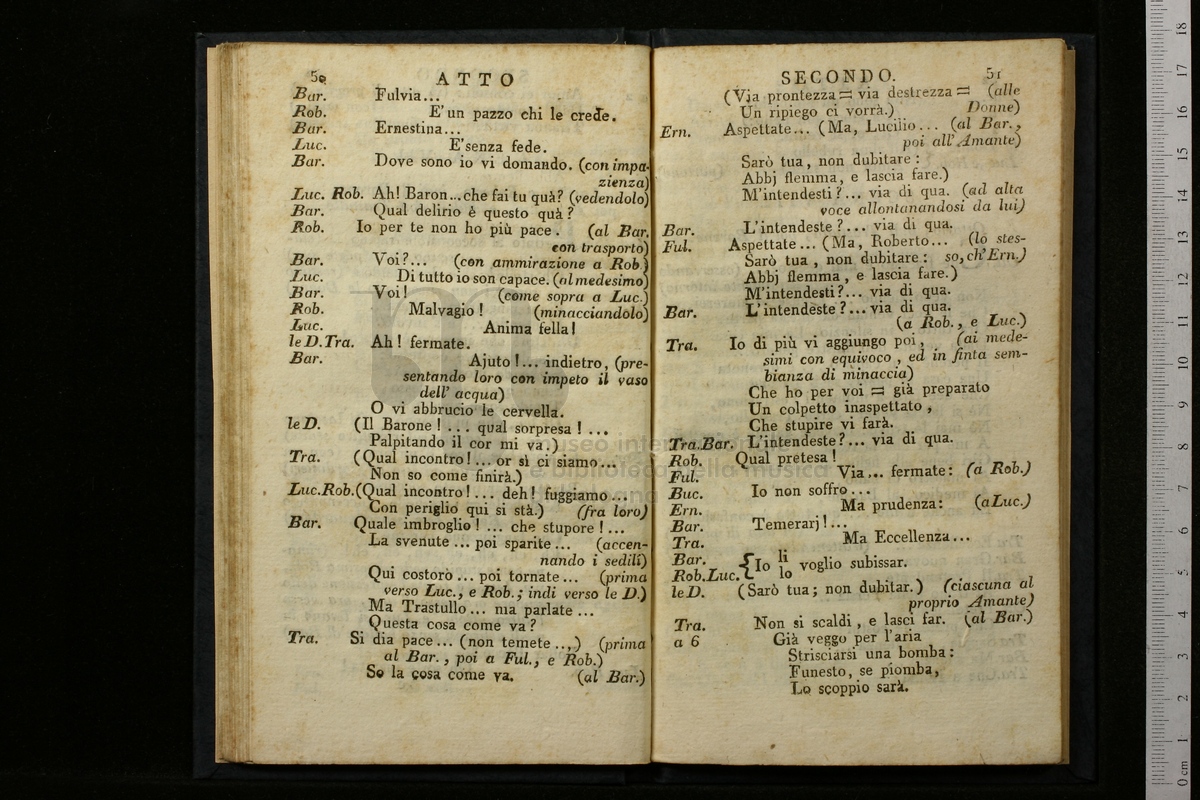 50 ATTO
Bar. Fulvia...
Rob. E' un pazzo chi le crede.
Bar. Ernestina...
Luc. E' senza fede.
Bar. Dove sono io vi domando. (con impa-
zienza)
Luc. Rob. Ah! Baron... che fai tu quà? (vedendolo)
Bar. Qual delirio è questo quà?
Rob. Io per te non ho più pace. (al Bar.
con trasporto)
Bar. Voi?... (con ammirazione a Rob.)
Luc. Di tutto io son capace. (al medesimo)
Bar. Voi! (come sopra a Luc.)
Rob. Malvagio! (minacciandolo)
Luc. Anima fella!
le D. Tra. Ah! fermate.
Bar. Ajuto!... indietro, (pre-
sentando loro con impeto il vaso
dell' acqua)
O vi abbrucio le cervella.
le D. (Il Barone!... qual sorpresa!...
Palpitando il cor mi va.)
Tra. (Qual incontro!... or sì ci siamo...
Non so come finirà.)
Luc. Rob. (Qual incontro!... deh! fuggiamo...
Con periglio qui si stà.) (fra loro)
Bar. Quale imbroglio!... che stupore!...
La svenute... poi sparite... (accen-
nando i sedili)
Qui costorò... poi tornate... (prima
verso Luc., e Rob.; indi verso le D.)
Ma Trastullo... ma parlate...
Questa cosa come va?
Tra. Si dia pace... (non temete...) (prima
al Bar., poi a Ful., e Rob.)
So la cosa come va. (al Bar.)
SECONDO. 51
(Via prontezza = via destrezza = (alle
Un ripiego ci vorrà.) Donne)
Ern. Aspettate... (Ma, Lucilio... (al Bar.,
poi all' Amante)
Sarò tua, non dubitare:
Abbj flemma, e lascia fare.)
M'intendesti?... via di qua. (ad alta
voce allontanandosi da lui)
Bar. L'intendeste?... via di qua.
Ful. Aspettate... (Ma, Roberto... (lo stes-
Sarò tua, non dubitare: so, ch' Ern.)
Abbj flemma, e lascia fare.)
M'intendesti?... via di qua.
Bar. L'intendeste?... via di qua.
(a Rob., e Luc.)
Tra. Io di più vi aggiungo poi, (ai mede-
simi con equivoco, ed in finta sem-
bianza di minaccia)
Che ho per voi = già preparato
Un colpetto inaspettato,
Che stupire vi farà.
Tra. Bar. L'intendeste?... via di qua.
Rob. Qual pretesa!
Ful. Via... fermate: (a Rob.)
Buc. Io non soffro...
Ern. Ma prudenza: (a Luc.)
Bar. Temerarj!...
Tra. Ma Eccellenza...
Bar. { Io li voglio subissar.
Rob. Luc. lo
le D. (Sarò tua; non dubitar.) (ciascuna al
proprio Amante)
Tra. Non si scaldi, e lasci far. (al Bar.)
a 6 Già veggo per l'aria
Strisciarsi una bomba:
Funesto, se piomba,
Lo scoppio sarà.